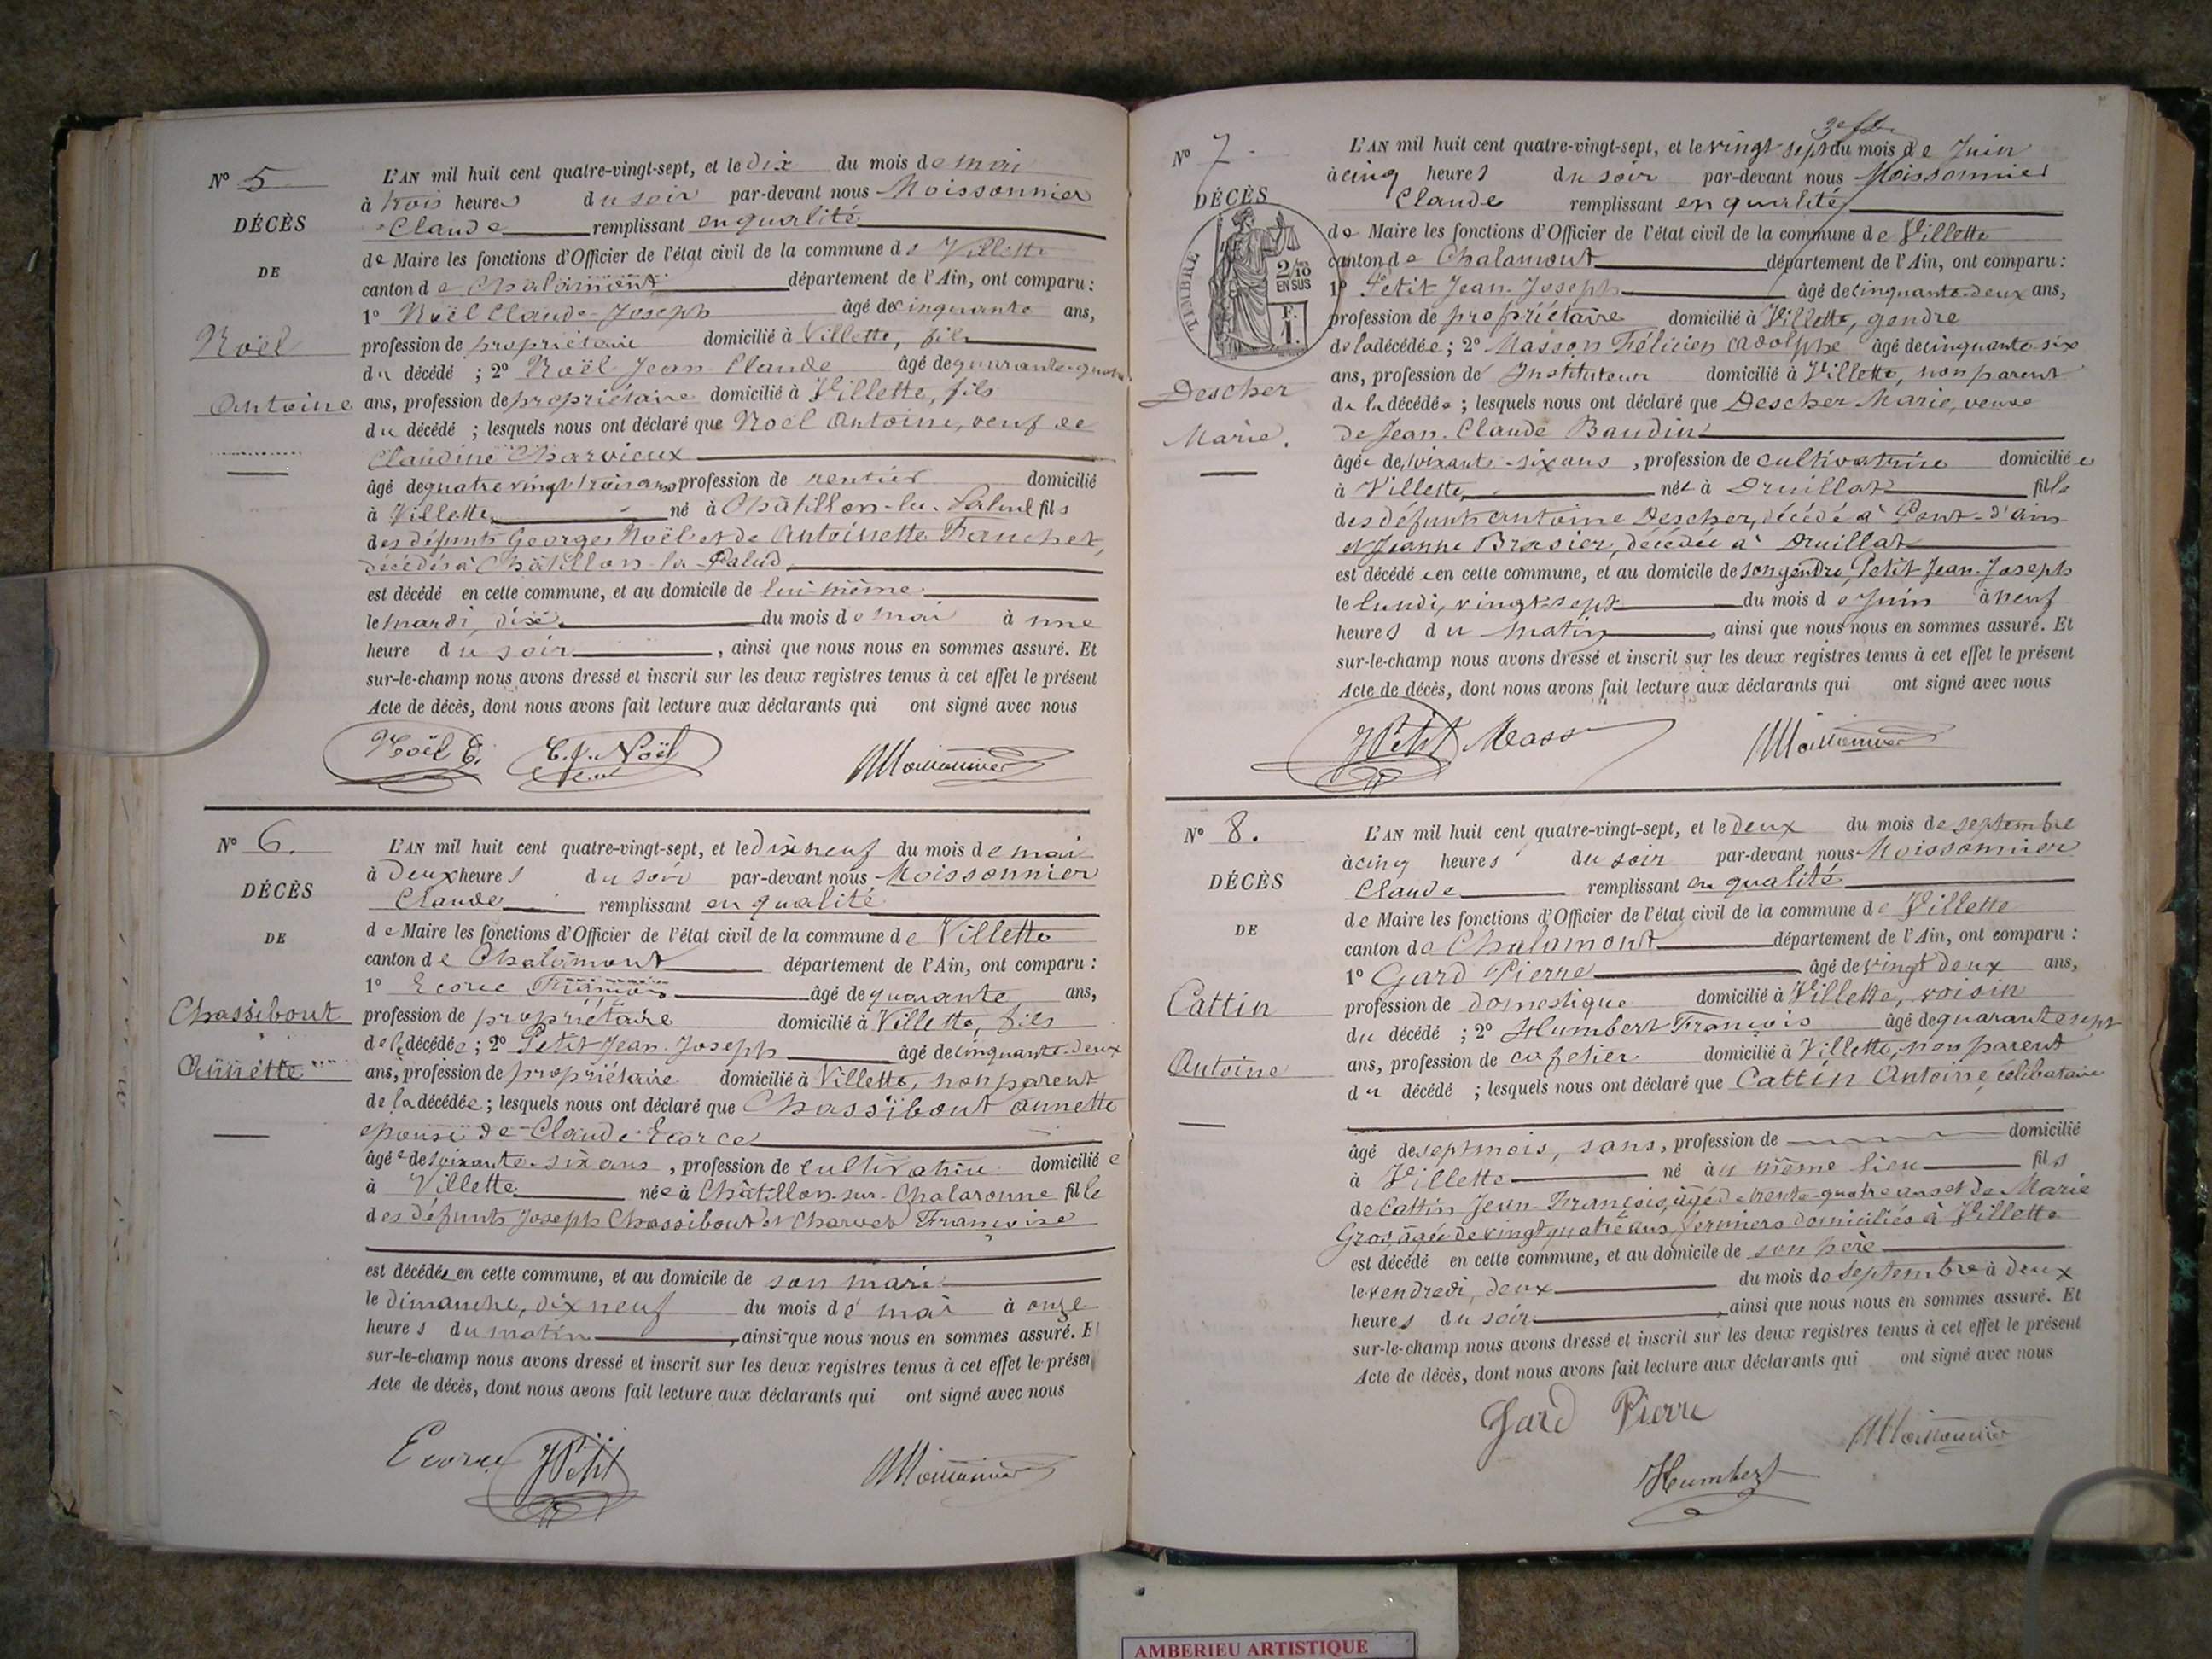 N° 5
DÉCÈS
DE
Noël
Antoine
L'AN mil huit cent quatre-vingt-sept, et le dix du mois de mai
à trois heures du soir par-devant nous Moissonnier
Claude remplissant en qualité
de Maire les fonctions d'Officier de l'état civil de la commune de Villette
canton de Chalamont département de l'Ain, ont comparu :
1° Noël Claude-Joseph âgé de cinquante ans,
profession de propriétaire domicilié à Villette, fils
du décédé ; 2° Noël Jean Claude âgé de quarante-quatre
ans, profession de propriétaire domicilié à Villette, fils
du décédé ; lesquels nous ont déclaré que Noël Antoine, veuf de
Claudine Charvieux
âgé de quatre vingt trois ans profession de rentier domicilié
à Villette né à Châtillon-la-Palud fils
des défunts Georges Noël et de Antoinette
décédés à Châtillon-la-Palud
est décédé en cette commune, et au domicile de lui-même
le mardi, dix du mois de mai à une
heure du soir , ainsi que nous nous en sommes assuré. Et
sur-le-champ nous avons dressé et inscrit sur les deux registres tenus à cet effet le présent
Acte de décès, dont nous avons fait lecture aux déclarants qui ont signé avec nous
Noël C. C.J. Noël Moissonnier
N° 6.
DÉCÈS
DE
Chassibout
Annette
L'AN mil huit cent quatre-vingt-sept, et le dix neuf du mois de mai
à deux heures du soir par-devant nous Moissonnier
Claude remplissant en qualité
de Maire les fonctions d'Officier de l'état civil de la commune de Villette
canton de Chalamont département de l'Ain, ont comparu :
1° Ecorce François âgé de quarante ans,
profession de propriétaire domicilié à Villette, fils
de la décédée ; 2° Petit Jean-Joseph âgé de cinquante-deux
ans, profession de propriétaire domicilié à Villette, non parent
de la décédée ; lesquels nous ont déclaré que Chassibout Annette
épouse de Claude Ecorce
âgée de soixante-six ans , profession de cultivatrice domiciliée
à Villette née à Châtillon-sur-Chalaronne fille
des défunts Joseph Chassibout et Charvet Françoise
est décédée en cette commune, et au domicile de son mari
le dimanche, dix neuf du mois de mai à onze
heures du matin , ainsi que nous nous en sommes assuré. E
sur-le-champ nous avons dressé et inscrit sur les deux registres tenus à cet effet le présen
Acte de décès, dont nous avons fait lecture aux déclarants qui ont signé avec nous
Ecorce JPetit Moissonnier
N° 7
DÉCÈS
TIMBRE
2/10
EN SUS
F.
1.
Descher
Marie.
L'AN mil huit cent quatre-vingt-sept, et le vingt sept du mois de Juin
à cinq heures du soir par-devant nous Moissonnier
Claude remplissant en qualité
de Maire les fonctions d'Officier de l'état civil de la commune de Villette
canton de Chalamont département de l'Ain, ont comparu :
1° Petit Jean-Joseph âgé de cinquante-deux ans,
profession de propriétaire domicilié à Villette, gendre
de la décédée ; 2° Masson Félicien Adolphe âgé de cinquante-six
ans, profession de Instituteur domicilié à Villette, non parent
de la décédée ; lesquels nous ont déclaré que Descher Marie, veuve
de Jean-Claude Baudin
âgée de soixante-six ans , profession de cultivatrice domiciliée
à Villette née à Druillat fille
des défunts Antoine Descher, décédé à Pont-d'ain
et Jeanne Brasier, décédée à Druillat
est décédée en cette commune, et au domicile de son gendre Petit Jean-Joseph
le lundi, vingt-sept du mois de Juin à neuf
heures du matin , ainsi que nous nous en sommes assuré. Et
sur-le-champ nous avons dressé et inscrit sur les deux registres tenus à cet effet le présent
Acte de décès, dont nous avons fait lecture aux déclarants qui ont signé avec nous
JPetit Masson Moissonnier
N° 8.
DÉCÈS
DE
Cattin
Antoine
L'AN mil huit cent quatre-vingt-sept, et le deux du mois de septembre
à cinq heures du soir par-devant nous Moissonnier
Claude remplissant en qualité
de Maire les fonctions d'Officier de l'état civil de la commune de Villette
canton de Chalamont département de l'Ain, ont comparu :
1° Gard Pierre âgé de vingt deux ans,
profession de domestique domicilié à Villette, voisin
du décédé ; 2° Humbert François âgé de quarante sept
ans, profession de cafetier domicilié à Villette, non parent
du décédé ; lesquels nous ont déclaré que Cattin Antoine, célibataire
âgé de sept mois, sans, profession de domicilié
à Villette né au même lieu fils
de Cattin Jean-François, âgé de trente-quatre ans et de Marie
Gros, âgée de vingt quatre ans, fermiers domiciliés à Villette
est décédé en cette commune, et au domicile de son père
le vendredi, deux du mois de septembre à deux
heures du soir , ainsi que nous nous en sommes assuré. Et
sur-le-champ nous avons dressé et inscrit sur les deux registres tenus à cet effet le présent
Acte de décès, dont nous avons fait lecture aux déclarants qui ont signé avec nous
Gard Pierre Moissonnier
Humbert
AMBERIEU ARTISTIQUE